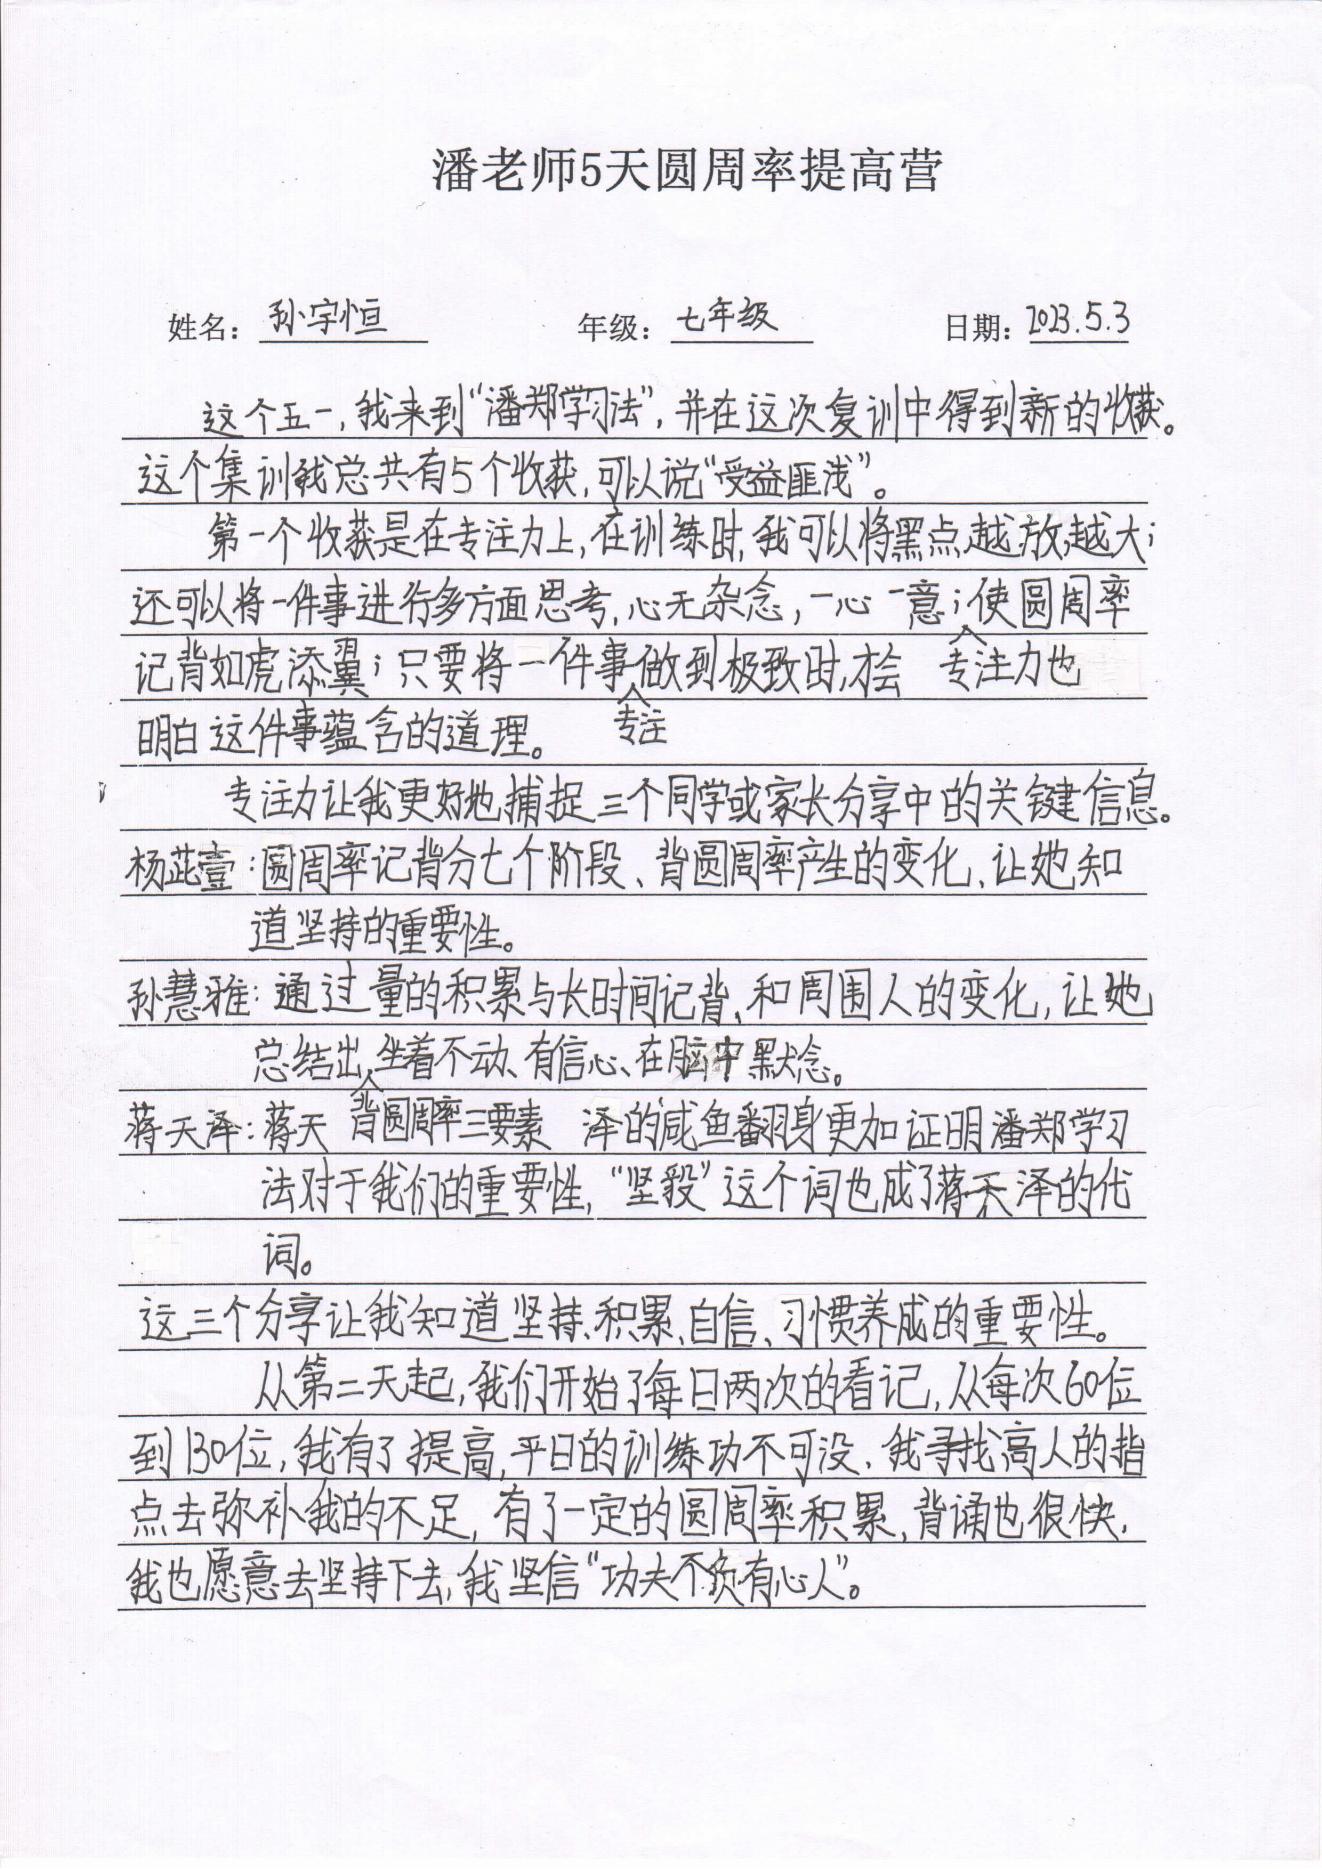 潘老师5天圆周率提高营
姓名：孙宇恒 年级：七年级 日期：2023.5.3
这个五一，我来到“潘郑学习法”，并在这次复训中得到新的收获。
这个集训我总共有5个收获，可以说“受益匪浅”。
第一个收获是在专注力上，在训练时，我可以将黑点越放越大；
还可以将一件事进行多方面思考，心无杂念，一心一意；使圆周率
记背如虎添翼；只要将一件事做到极致时，才会 专注力也
明白这件事蕴含的道理。 专注
专注力让我更好地捕捉三个同学或家长分享中的关键信息。
杨芷壹：圆周率记背分七个阶段、背圆周率产生的变化、让她知
道坚持的重要性。
孙慧雅：通过量的积累与长时间记背、和周围人的变化，让她
总结出坐着不动、有信心、在脑中默念。
蒋天泽：蒋天 背圆周率三要素 泽的咸鱼翻身更加证明潘郑学习
法对于我们的重要性，“坚毅”这个词也成了蒋天泽的代
词。
这三个分享让我知道坚持、积累、自信、习惯养成的重要性。
从第二天起，我们开始了每日两次的看记，从每次60位
到130位，我有了提高，平日的训练功不可没，我寻找高人的指
点去弥补我的不足，有了一定的圆周率积累，背诵也很快，
我也愿意去坚持下去，我坚信“功夫不负有心人”。